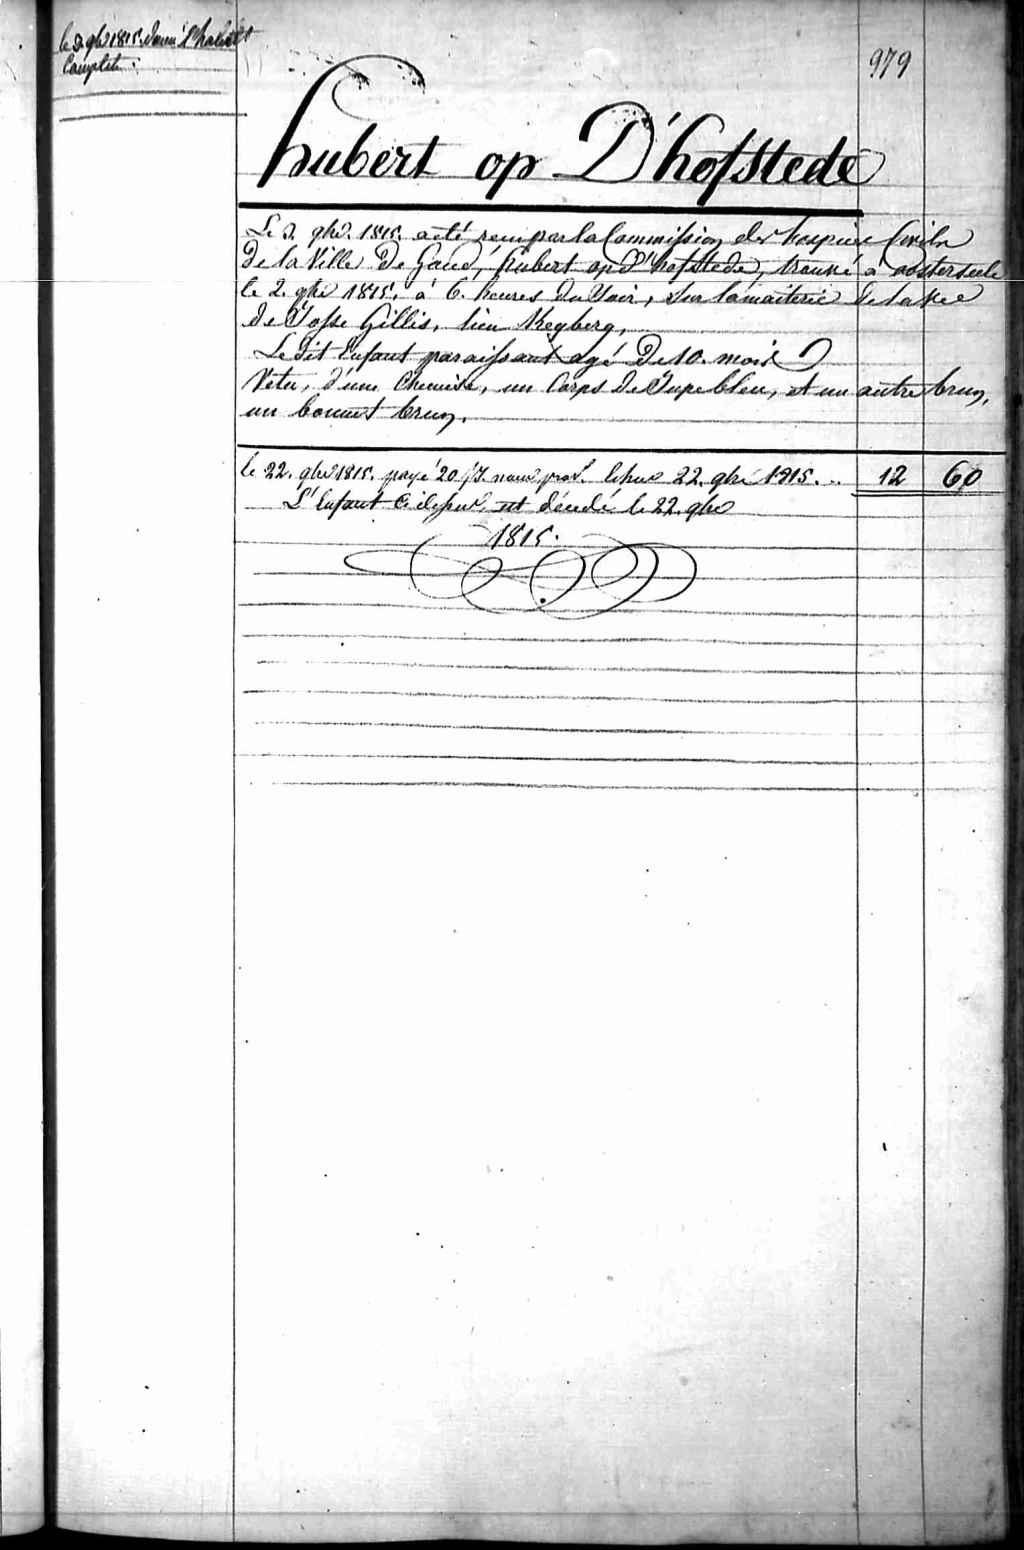 le 3. 9bre 1815. donné l'habillt
Complet.
979
hubert op D'hofstede
Le 3. 9bre. 1815. a été remi par la Commission des hospices Civils
De la Ville De Gand, hubert op D'hofstede, trouvé à oosterseele
le 2. 9bre 1815, à 6. heures du Soir, Sur la
de Josse Gillis, lieu Keyberg,
Le dit Enfant paraissant agé De 10. mois
Vetu, d'une Chemise, un Corps De Jupe bleu, et un autre brun,
un bonnet brun,
le 22. 9bre 1815. payé 20 22. 9bre 1815. .. 12 60
L'Enfant est décédé le 22. 9bre
1815.